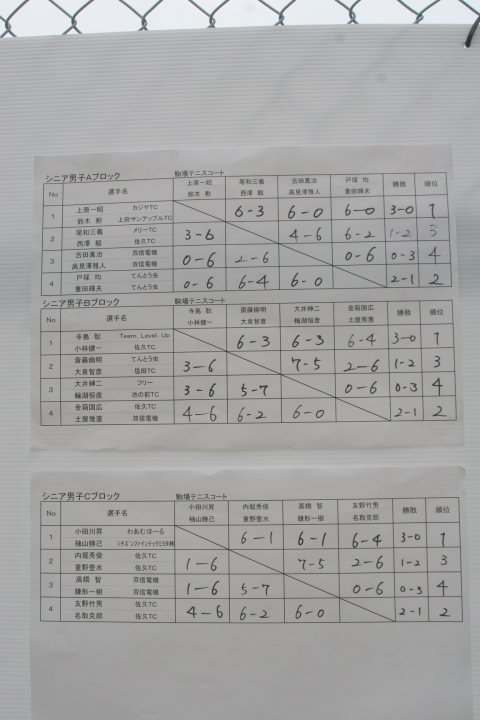 シニア男子Aブロック 駒場テニスコート
No 選手名 上原一昭 尾和三義 吉田真治 戸塚 均 勝敗 順位
鈴木 勲 西澤 毅 高見澤雅人 重田輝夫
1 上原一昭 カジヤTC 6-3 6-0 6-0 3-0 1
鈴木 勲 上田サンアップルTC
2 尾和三義 メリーTC 3-6 4-6 6-2 1-2 3
西澤 毅 佐久TC
3 吉田真治 双信電機 0-6 2-6 0-6 0-3 4
高見澤雅人 双信電機
4 戸塚 均 てんとう虫 0-6 6-4 6-0 2-1 2
重田輝夫 てんとう虫
シニア男子Bブロック 駒場テニスコート
No 選手名 寺島 聡 斎藤倫明 大井紳二 金箱国広 勝敗 順位
小林健一 大泉智彦 輪湖恒彦 土屋雅憲
1 寺島 聡 Team. Level. Up 6-3 6-3 6-4 3-0 1
小林健一 佐久TC
2 斎藤倫明 てんとう虫 3-6 7-5 2-6 1-2 3
大泉智彦 塩田TC
3 大井紳二 フリー 3-6 5-7 0-6 0-3 4
輪湖恒彦 池の前TC
4 金箱国広 佐久TC 4-6 6-2 6-0 2-1 2
土屋雅憲 双信電機
シニア男子Cブロック 駒場テニスコート
No 選手名 小田川昇 内堀秀俊 高橋 智 友野竹男 勝敗 順位
袖山勝己 重野豊水 鎌形一樹 名取克郎
1 小田川昇 わあむほーる 6-1 6-1 6-4 3-0 1
袖山勝己 シチズンファインテックミヨタ㈱
2 内堀秀俊 佐久TC 1-6 7-5 2-6 1-2 3
重野豊水 佐久TC
3 高橋 智 双信電機 1-6 5-7 0-6 0-3 4
鎌形一樹 双信電機
4 友野竹男 佐久TC 4-6 6-2 6-0 2-1 2
名取克郎 佐久TC